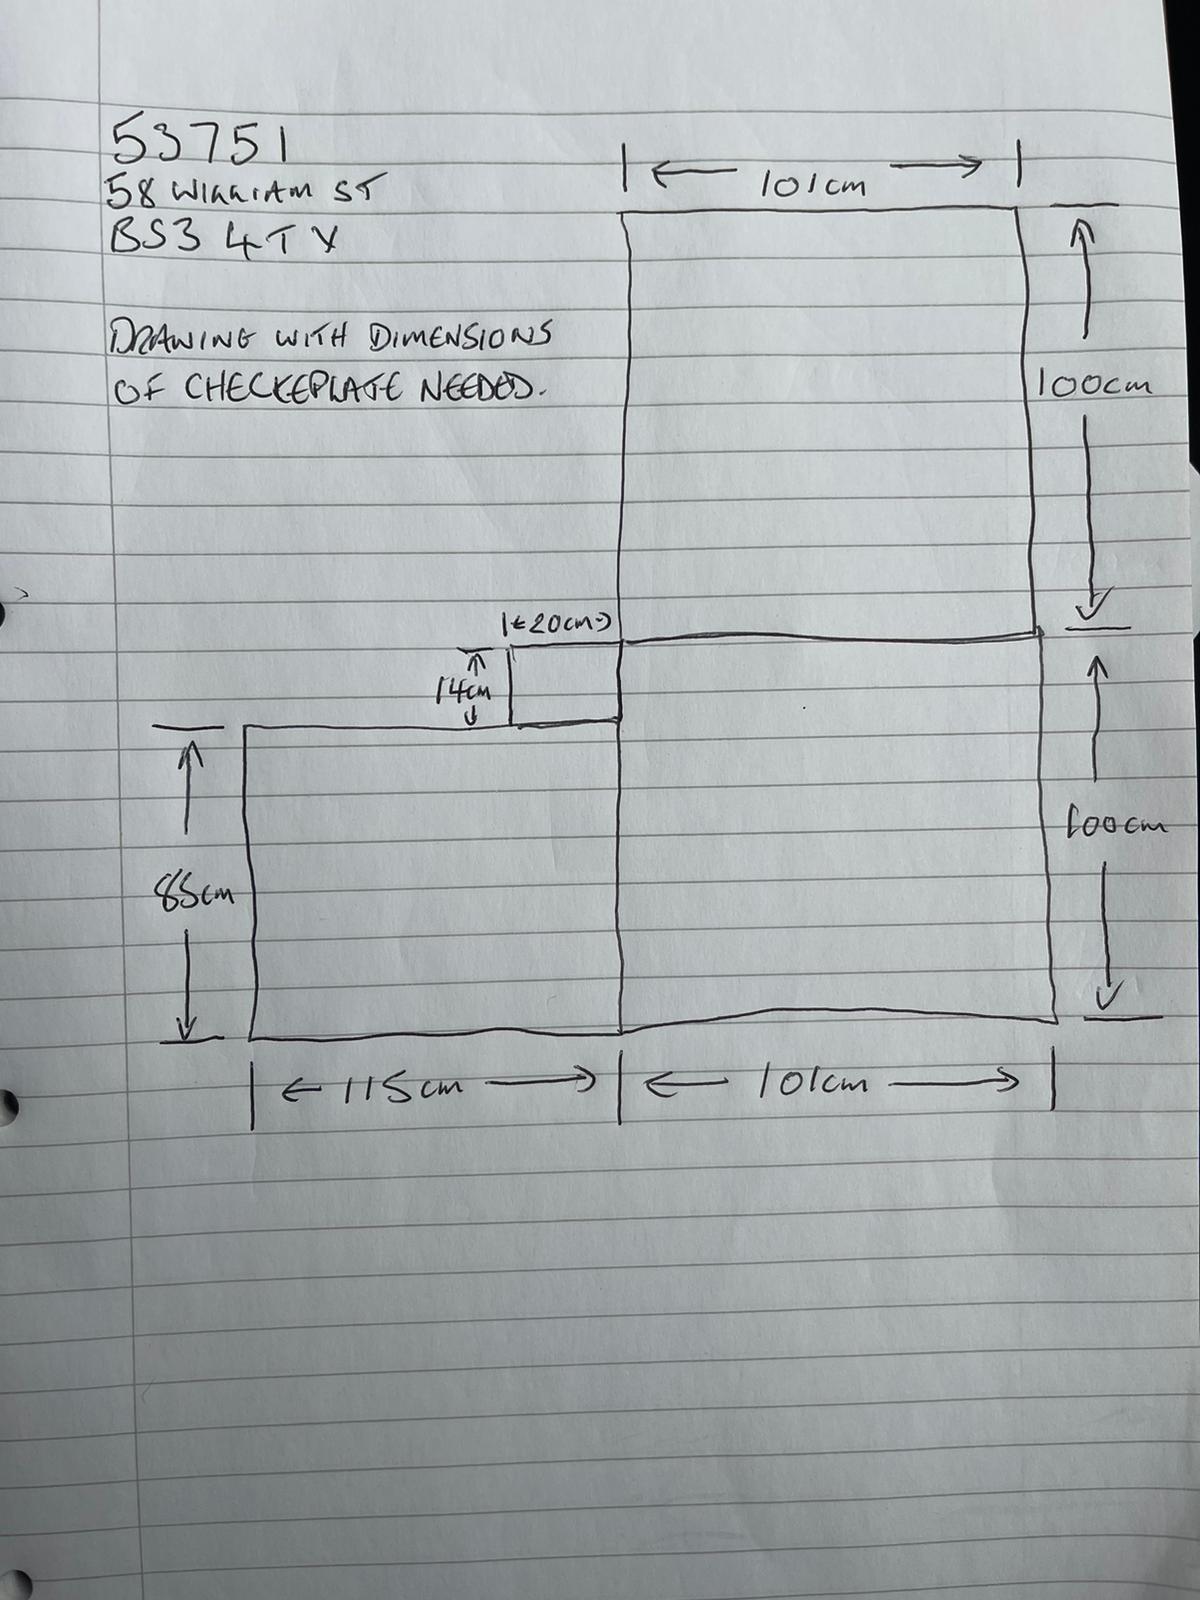 53751
58 WILLIAM ST
BS3 4TY
DRAWING WITH DIMENSIONS
OF CHECKEPLATE NEEDED.
101cm
100cm
20cm
14cm
100cm
85cm
115cm
101cm